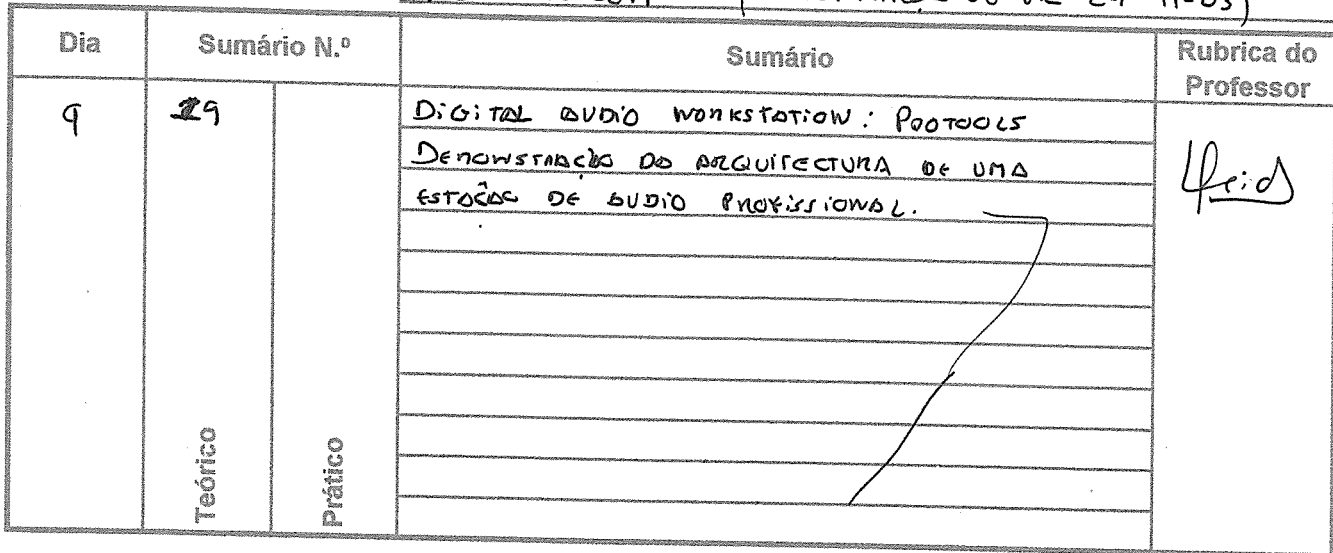 Dia Sumário N.º Sumário Rubrica do Professor
9 29 DiGiTAL AUDiO WORKSTATiON: PROTOOLS
DEMONSTRAÇÃO DA ARQUITECTURA DE UMA
ESTAÇÃO DE AUDiO PROFiSSiONAL.
Teórico
Prático